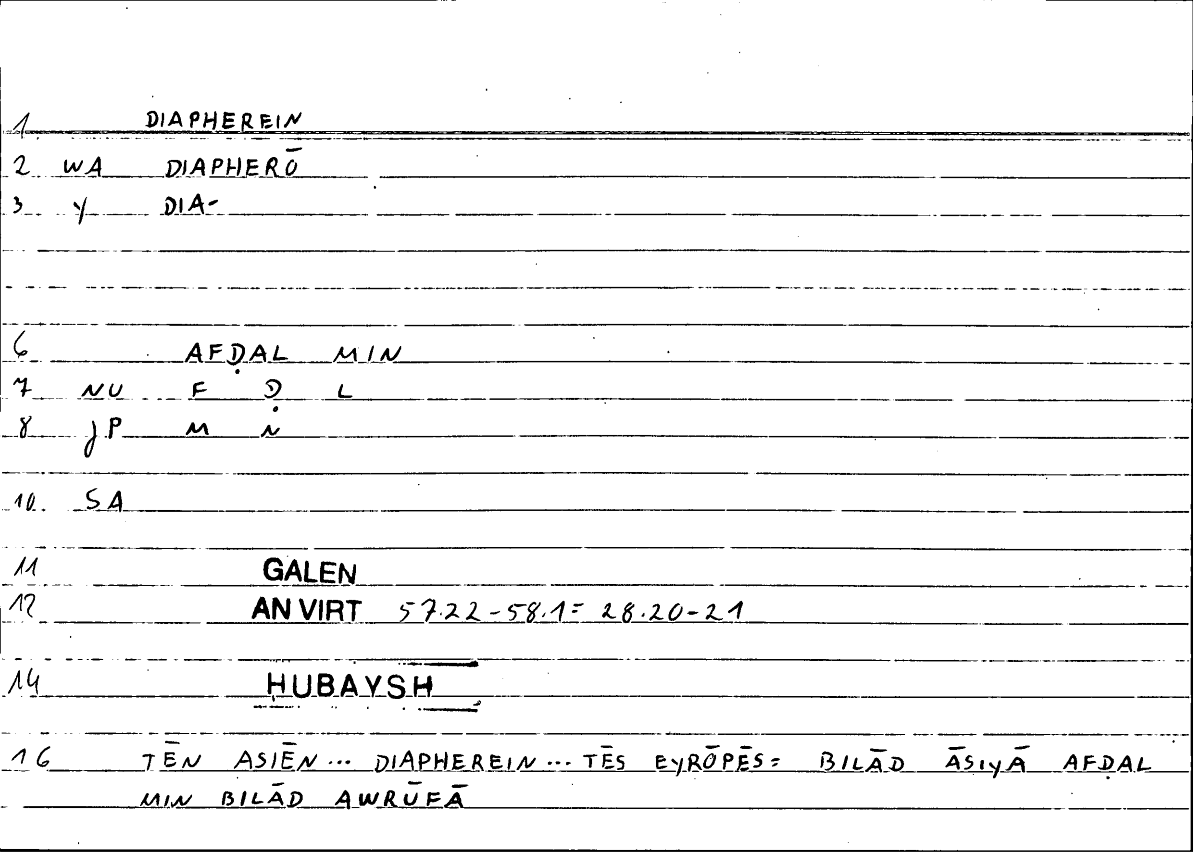 1 DIAPHEREIN
2 WA DIAPHERŌ
3 Y DIA-
6 AFḌAL MIN
7 NU F Ḍ L
8 JP M N
10. SA
11 GALEN
12 AN VIRT 57.22-58.1= 28.20-21
14 HUBAYSH
16 TĒN ASIĒN... DIAPHEREIN... TĒS EYRŌPĒS= BILĀD ĀSIYĀ AFḌAL
MIN BILĀD AWRŪFĀ